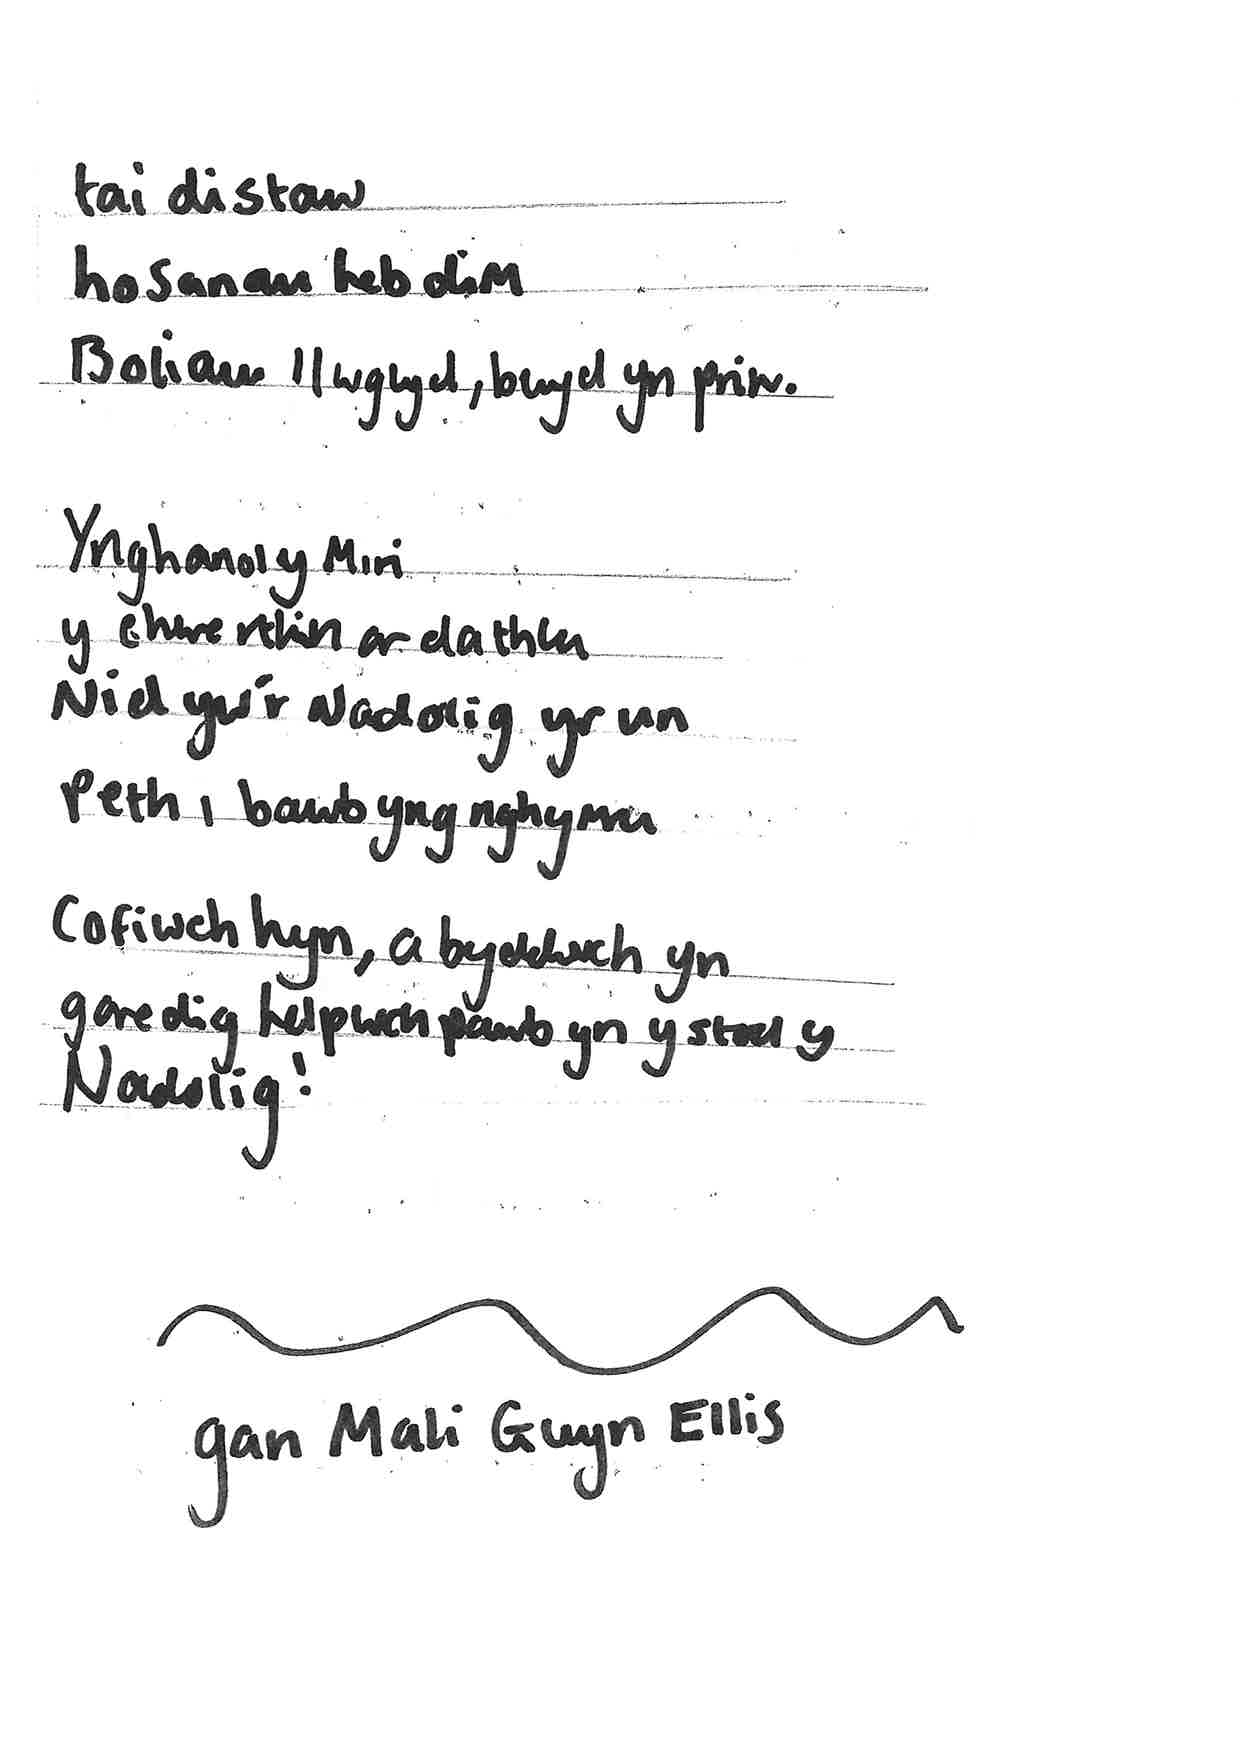 tai distaw
hosanau heb dim
Boliau llwglyd, bwyd yn prin.
Ynghanol y Miri
y chwerthin ar dathlu
Nid yw'r Nadolig yr un
Peth i bawb yng nghymru
Cofiwch hyn, a byddwch yn
garedig helpwch pawb yn ystod y
Nadolig!
gan Mali Gwyn Ellis